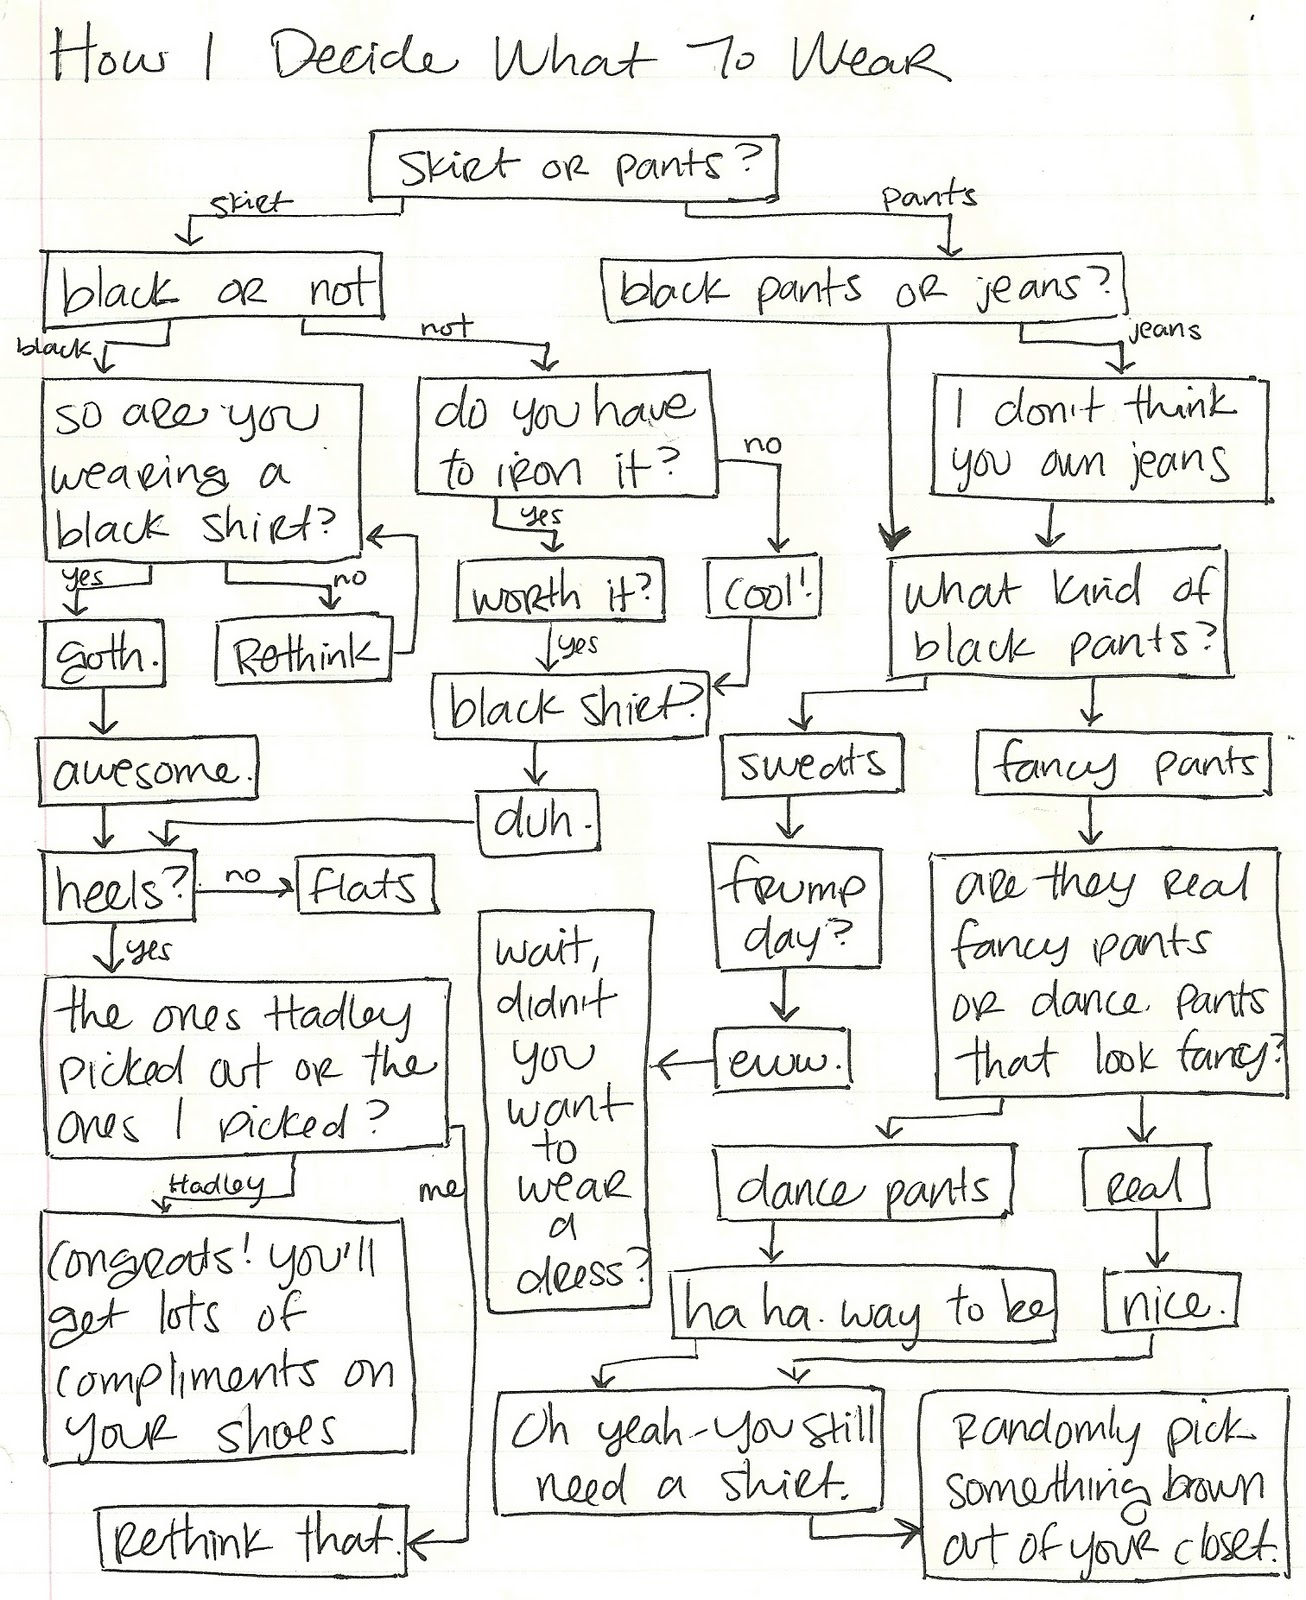 How I Decide What To Wear
skirt or pants?
skirt
pants
black or not
black pants or jeans?
black
not
jeans
so are you
wearing a
black shirt?
do you have
to iron it?
no
I don't think
you own jeans
yes
yes
no
worth it?
cool!
what kind of
black pants?
goth.
Rethink
yes
black shirt?
awesome.
sweats
fancy pants
duh.
heels?
no
flats
frump
day?
are they real
fancy pants
or dance pants
that look fancy?
yes
wait,
didn't
you
want
to
wear
a
dress?
the ones Hadley
picked out or the
ones I picked?
eww.
Hadley
me
dance pants
real
congrats! you'll
get lots of
compliments on
your shoes
ha ha. way to be
nice.
Oh yeah-you still
need a shirt.
Randomly pick
something brown
out of your closet.
Rethink that.